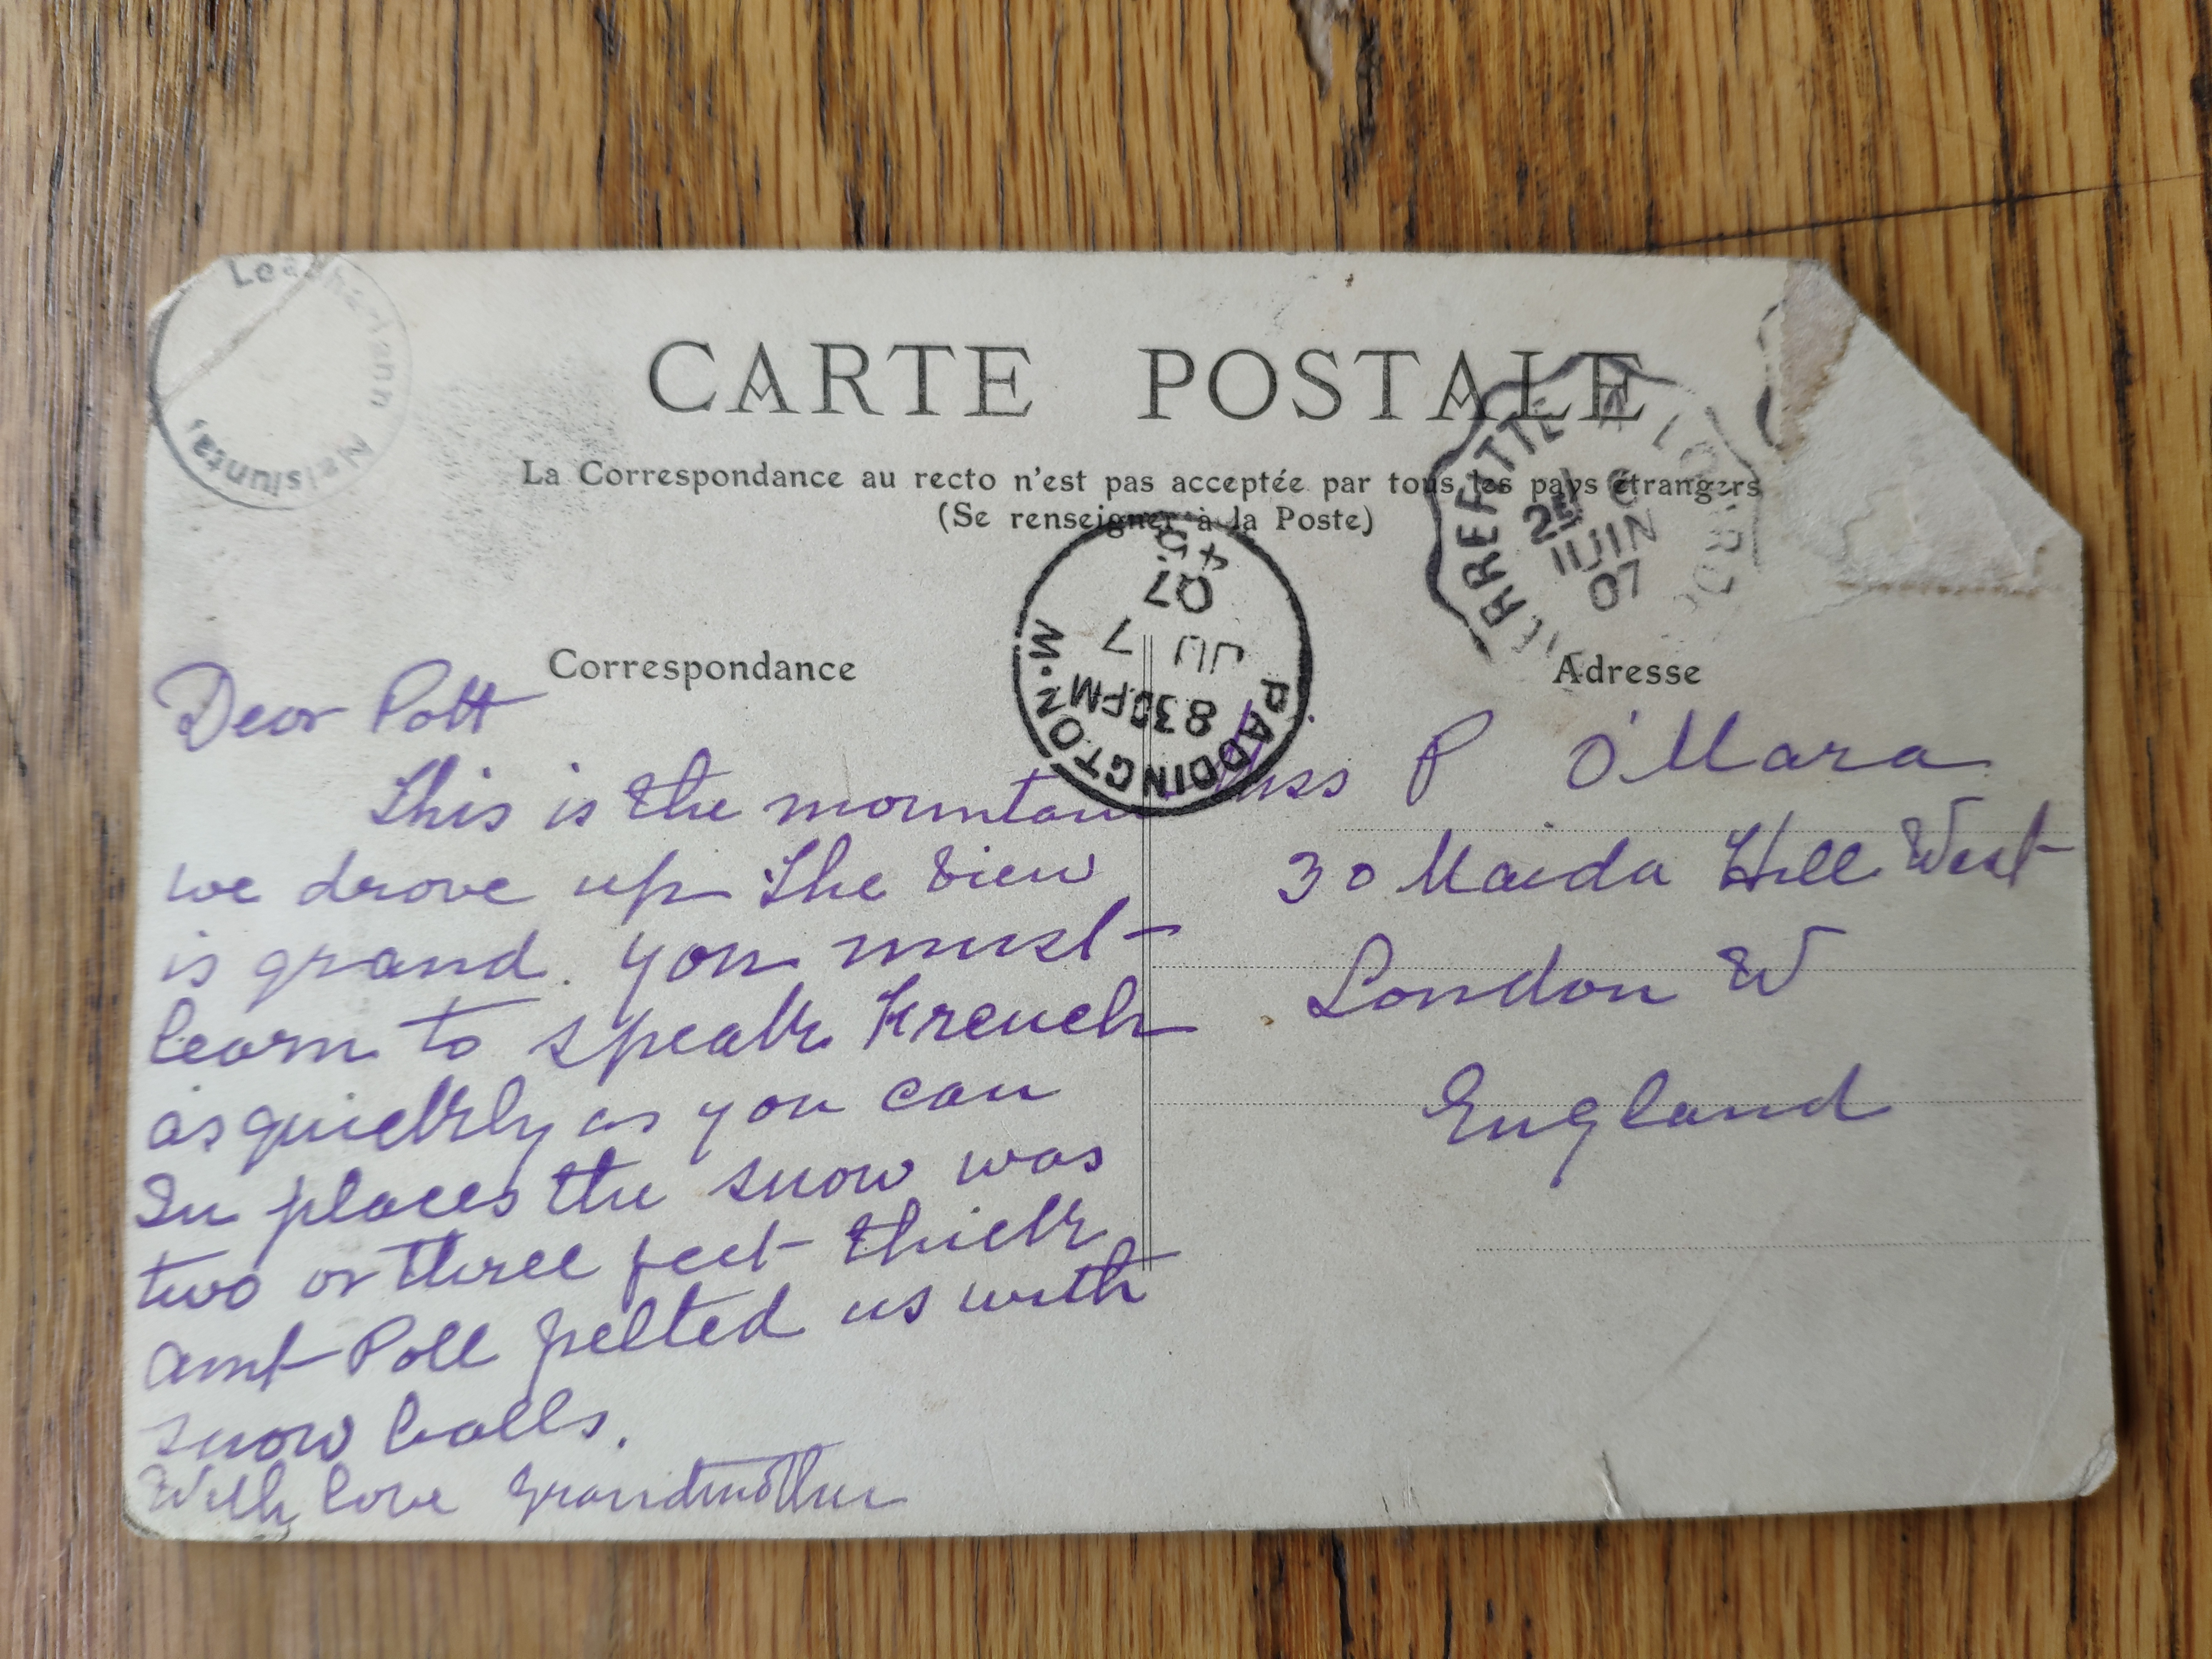 CARTE POSTALE
La Correspondance au recto n'est pas acceptée par tous les pays étrangers
(Se renseigner à la Poste)
Correspondance
Adresse
Dear Pott
This is the mountain
we drove up The view
is grand. you must
learn to speak French
as quickly as you can
In places the snow was
two or three feet thick
aunt Poll pelted us with
snow balls.
With love Grandmother
Miss P O'Mara
30 Maida Hill West
London W
England
PADDINGTON. W.
8 30 PM
JU 7
07
PIERREFITTE A
2E
JUIN
07